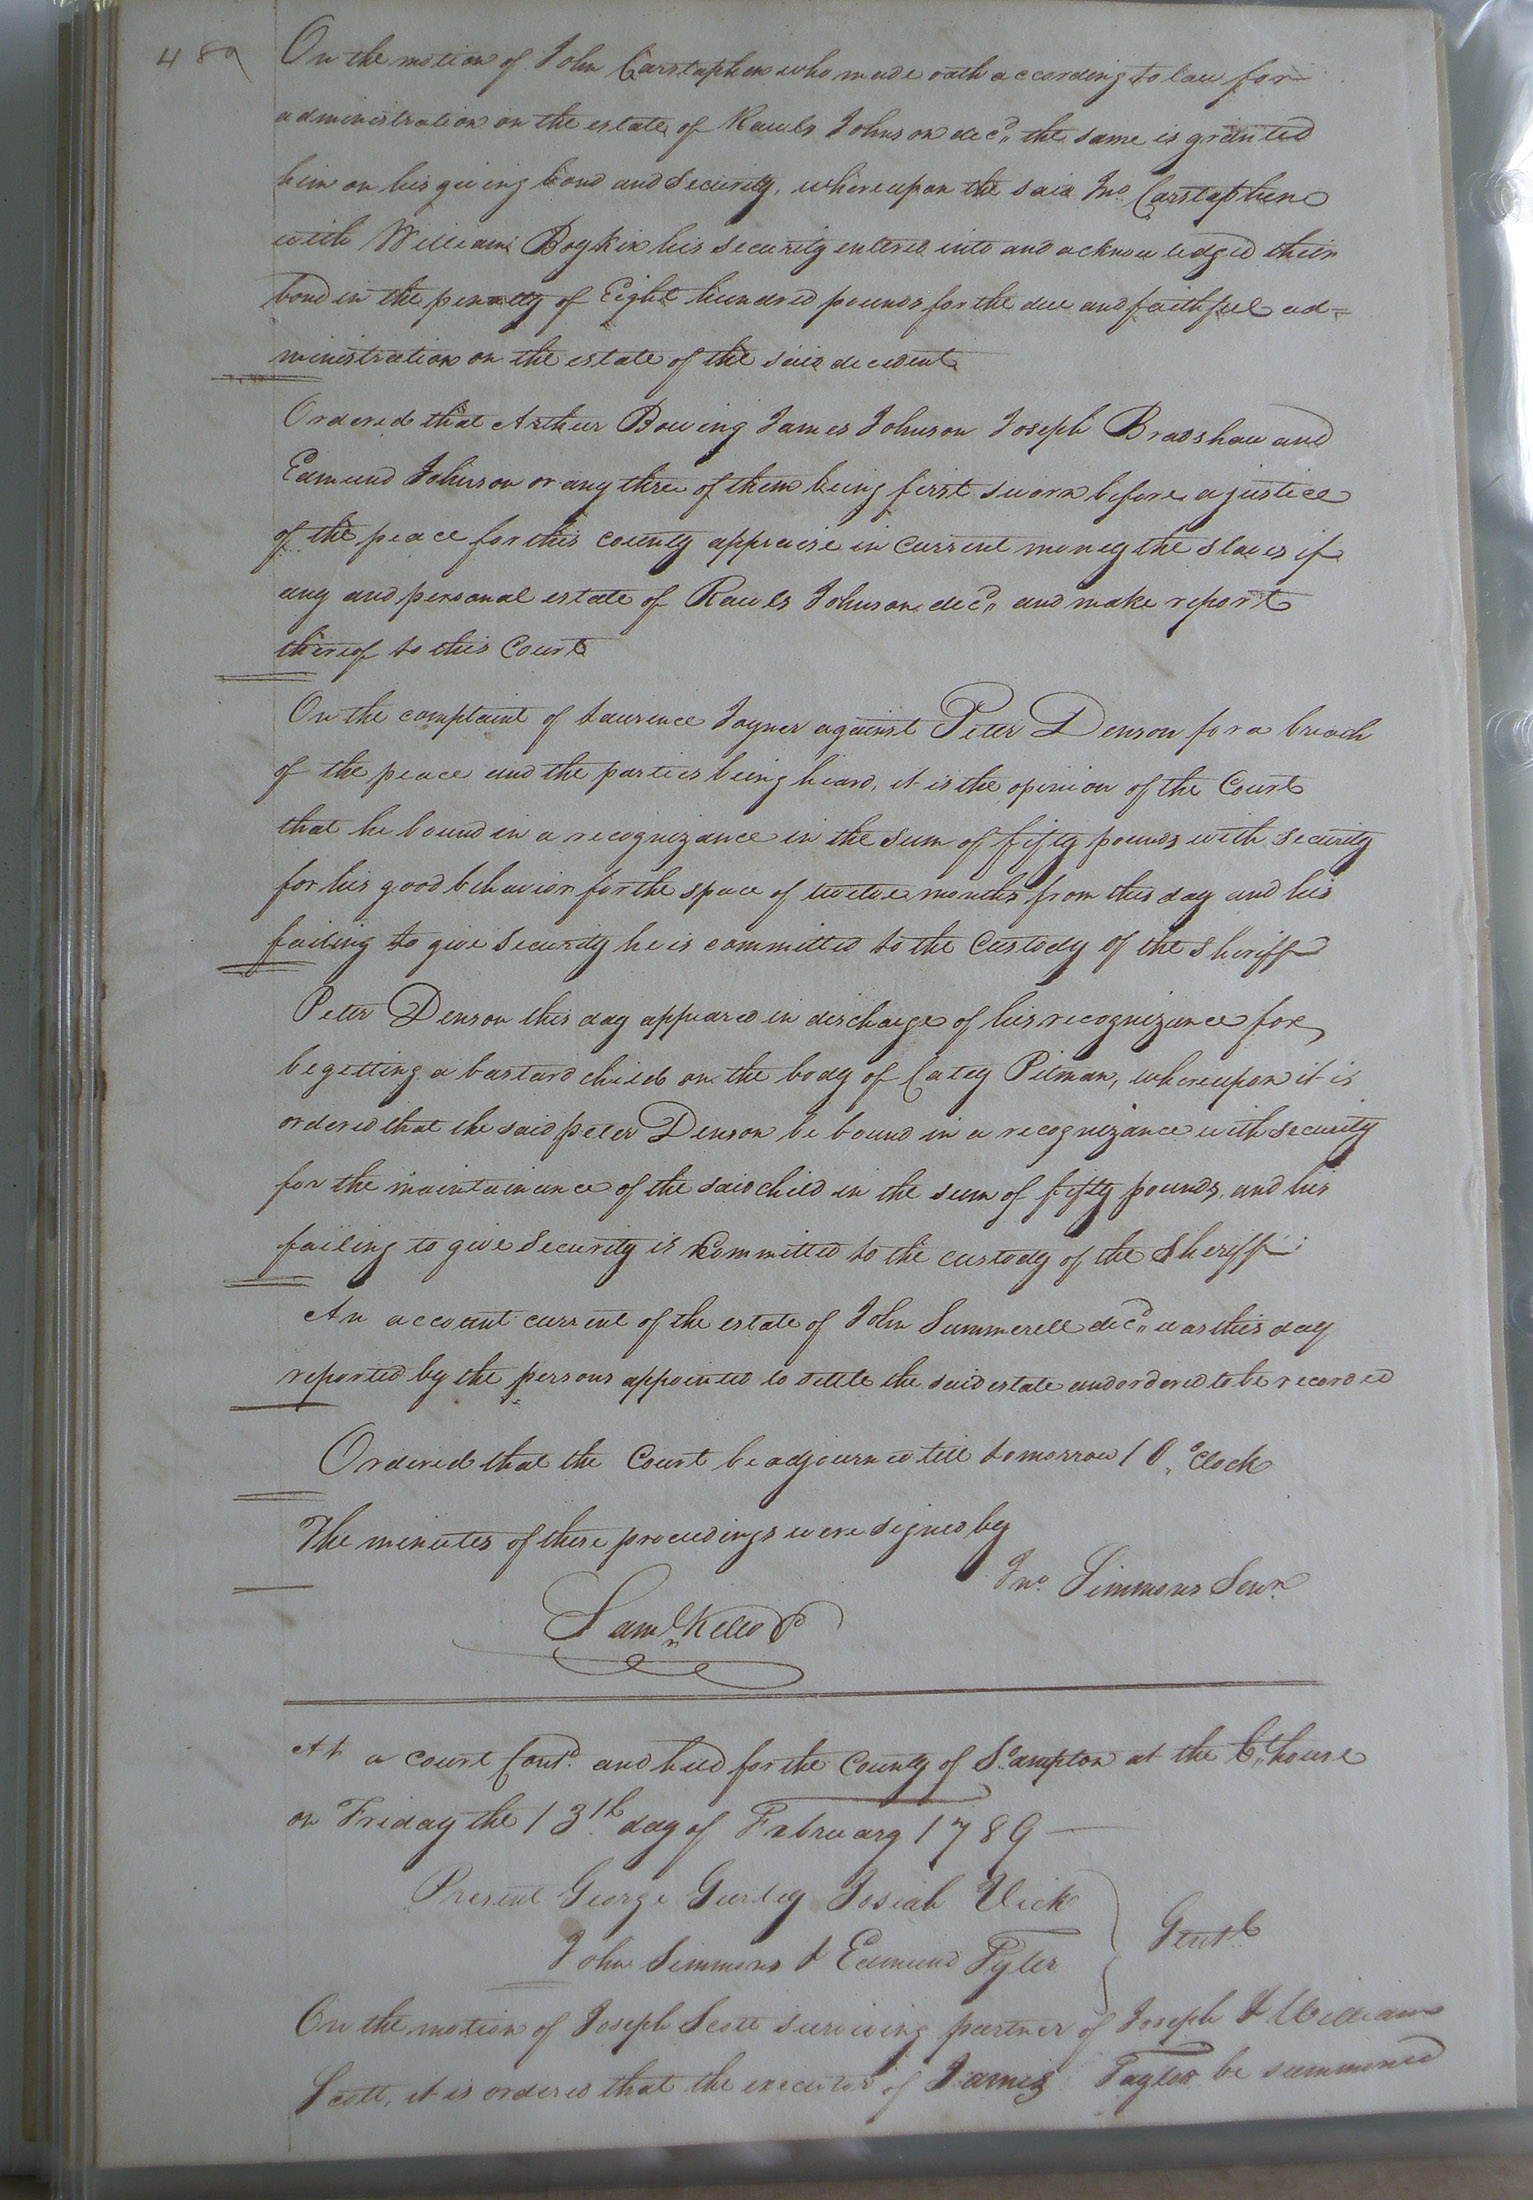 489
On the motion of John Carstaphen who made oath according to law for
administration on the estate of Rawls Johnson decd,, the same is granted
him on his giving bond and security, whereupon the said Jno. Carstaphen
with William Boykin his security entered into and acknowledged their
bond in the penalty of Eight hundred pounds for the due and faithful ad=
ministration on the estate of the said decedent
Ordered that Arthur Bowing James Johnson Joseph Bradshaw and
Edmund Johnson or any three of them being first sworn before a justice
of the peace for this county appraise in current money the slaves if
any and personal estate of Rawls Johnson decd,, and make report
thereof to this Court
On the complaint of Laurence Joyner against Peter Denson for a breach
of the peace and the parties being heard, it is the opinion of the Court
that he bound in a recognizance in the sum of fifty pounds with security
for his good behavior for the space of twelve months from this day and his
failing to give security he is committed to the custody of the Sheriff
Peter Denson this day appeared in discharge of his recognizance for
begetting a bastard child on the body of Catey Pitman, whereupon it is
ordered that the said peter Denson be bound in a recognizance with security
for the maintainance of the said child in the sum of fifty pounds, and his
failing to give security is Committed to the custody of the Sheriff:
An account current of the estate of John Summerell decd,, was this day
reported by the persons appointed to settle the said estate and ordered to be recorded
Ordered that the Court be adjourned till tomorrow 10 oClock
The minutes of these proceedings were signed by
Jno. Simmons Senr.
Saml. Kello
At a court Contd. and held for the County of So.ampton at the Ct,,house
on Friday the 13th. day of February 1789 —
Present George Gurley Josiah Vick
John Simmons & Edmund Tyler } Gentl.
On the motion of Joseph Scott surviving partner of Joseph & William
Scott, it is ordered that the executor of James Taylor be summoned